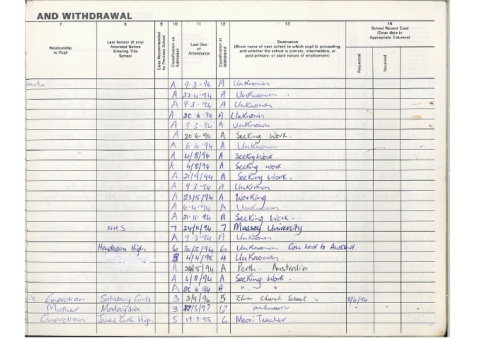 AND WITHDRAWAL
8 9 10 11 12 13 14
Relationship to Pupil
Last School (if any) Attended Before Entering This School
Class Recommended by Previous School
Classification on Admission
Last Day of Attendance
Destination
(Show name of next school to which pupil is proceeding, and whether the school is primary, intermediate, or post-primary; or state nature of employment)
School Record Card (Enter date in Appropriate Column)
Requested
Received
A 9-3-94 A Unknown
A 22-4-94 A Unknown
A 9-3-94 A Unknown
A 20-4-94 A Unknown
A 9-3-94 A Unknown
A 20-6-94 A Seeking Work.
A 6-4-94 A Unknown
A 4/8/94 A Seeking Work
A 4/8/94 A Seeking work
A 21/9/94 A Seeking Work.
A 9-3-94 A Unknown
A 23/5/94 A Working
A 6-4-94 A Unknown
A 21-11-94 A Seeking Work.
NHS 7 24/11/94 7 Massey University
A 9-3-94 A Unknown
Henderson High 6 30/5/94 6 Unknown Gone back to Auckland
4/4/95 4 Unknown.
A 24/5/94 A Perth. Australia
A 6/8/94 A Seeking Work.
A 20-6-94 A " "
Salisbury Girls 3 3/9/96 5 Church School 9/2/94
Mother Malaysia 3 27/3/97 unknown
James Park High 5 19-7-95 6 Teacher